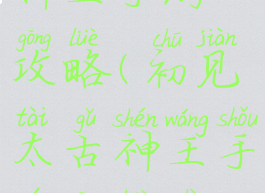 gōng lüè chū jiàn
攻略(初见
tài gǔ shén wáng shǒu
太古神王手